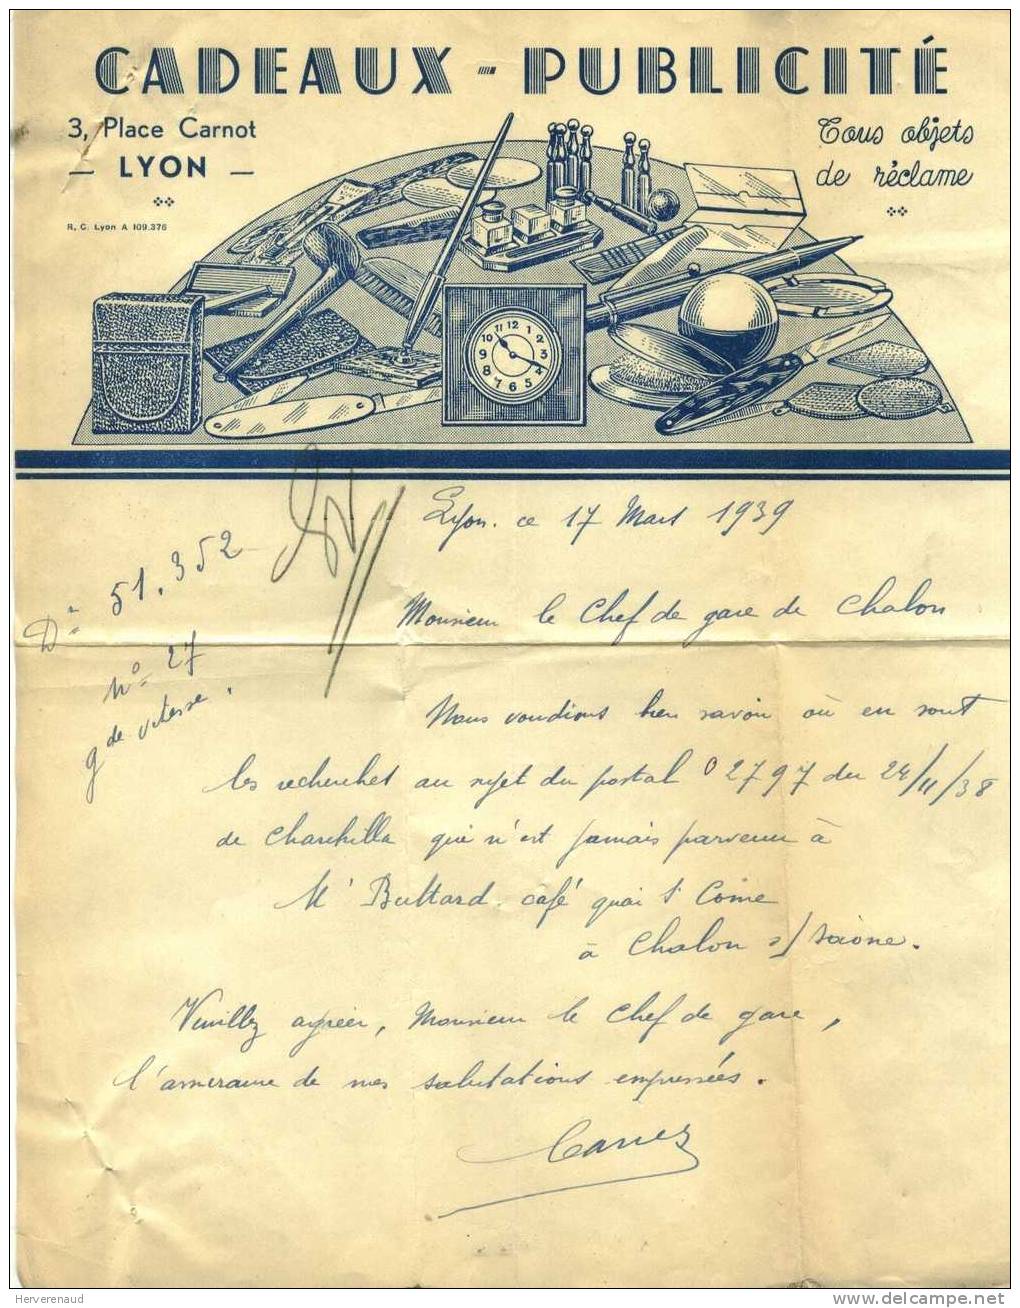 CADEAUX - PUBLICITÉ
3, Place Carnot
— LYON —
R. C. Lyon A 109.376
Tous objets
de réclame
11 12 1
10 2
9 3
8 4
7 6 5
Lyon. ce 17 Mars 1939
51.352
N° 27
gde vitesse.
Monsieur le Chef de gare de Chalon
Nous voudrions bien savoir où en sont
les recherches au sujet du postal 02797 du 24/11/38
de Charchilla qui n'est jamais parvenu à
Mr Buttard. café quai St Come
à Chalon s/ Saône.
Veuillez agréer, Monsieur le Chef de gare,
l'assurance de mes salutations empressées.
Herverenaud
www.delcampe.net